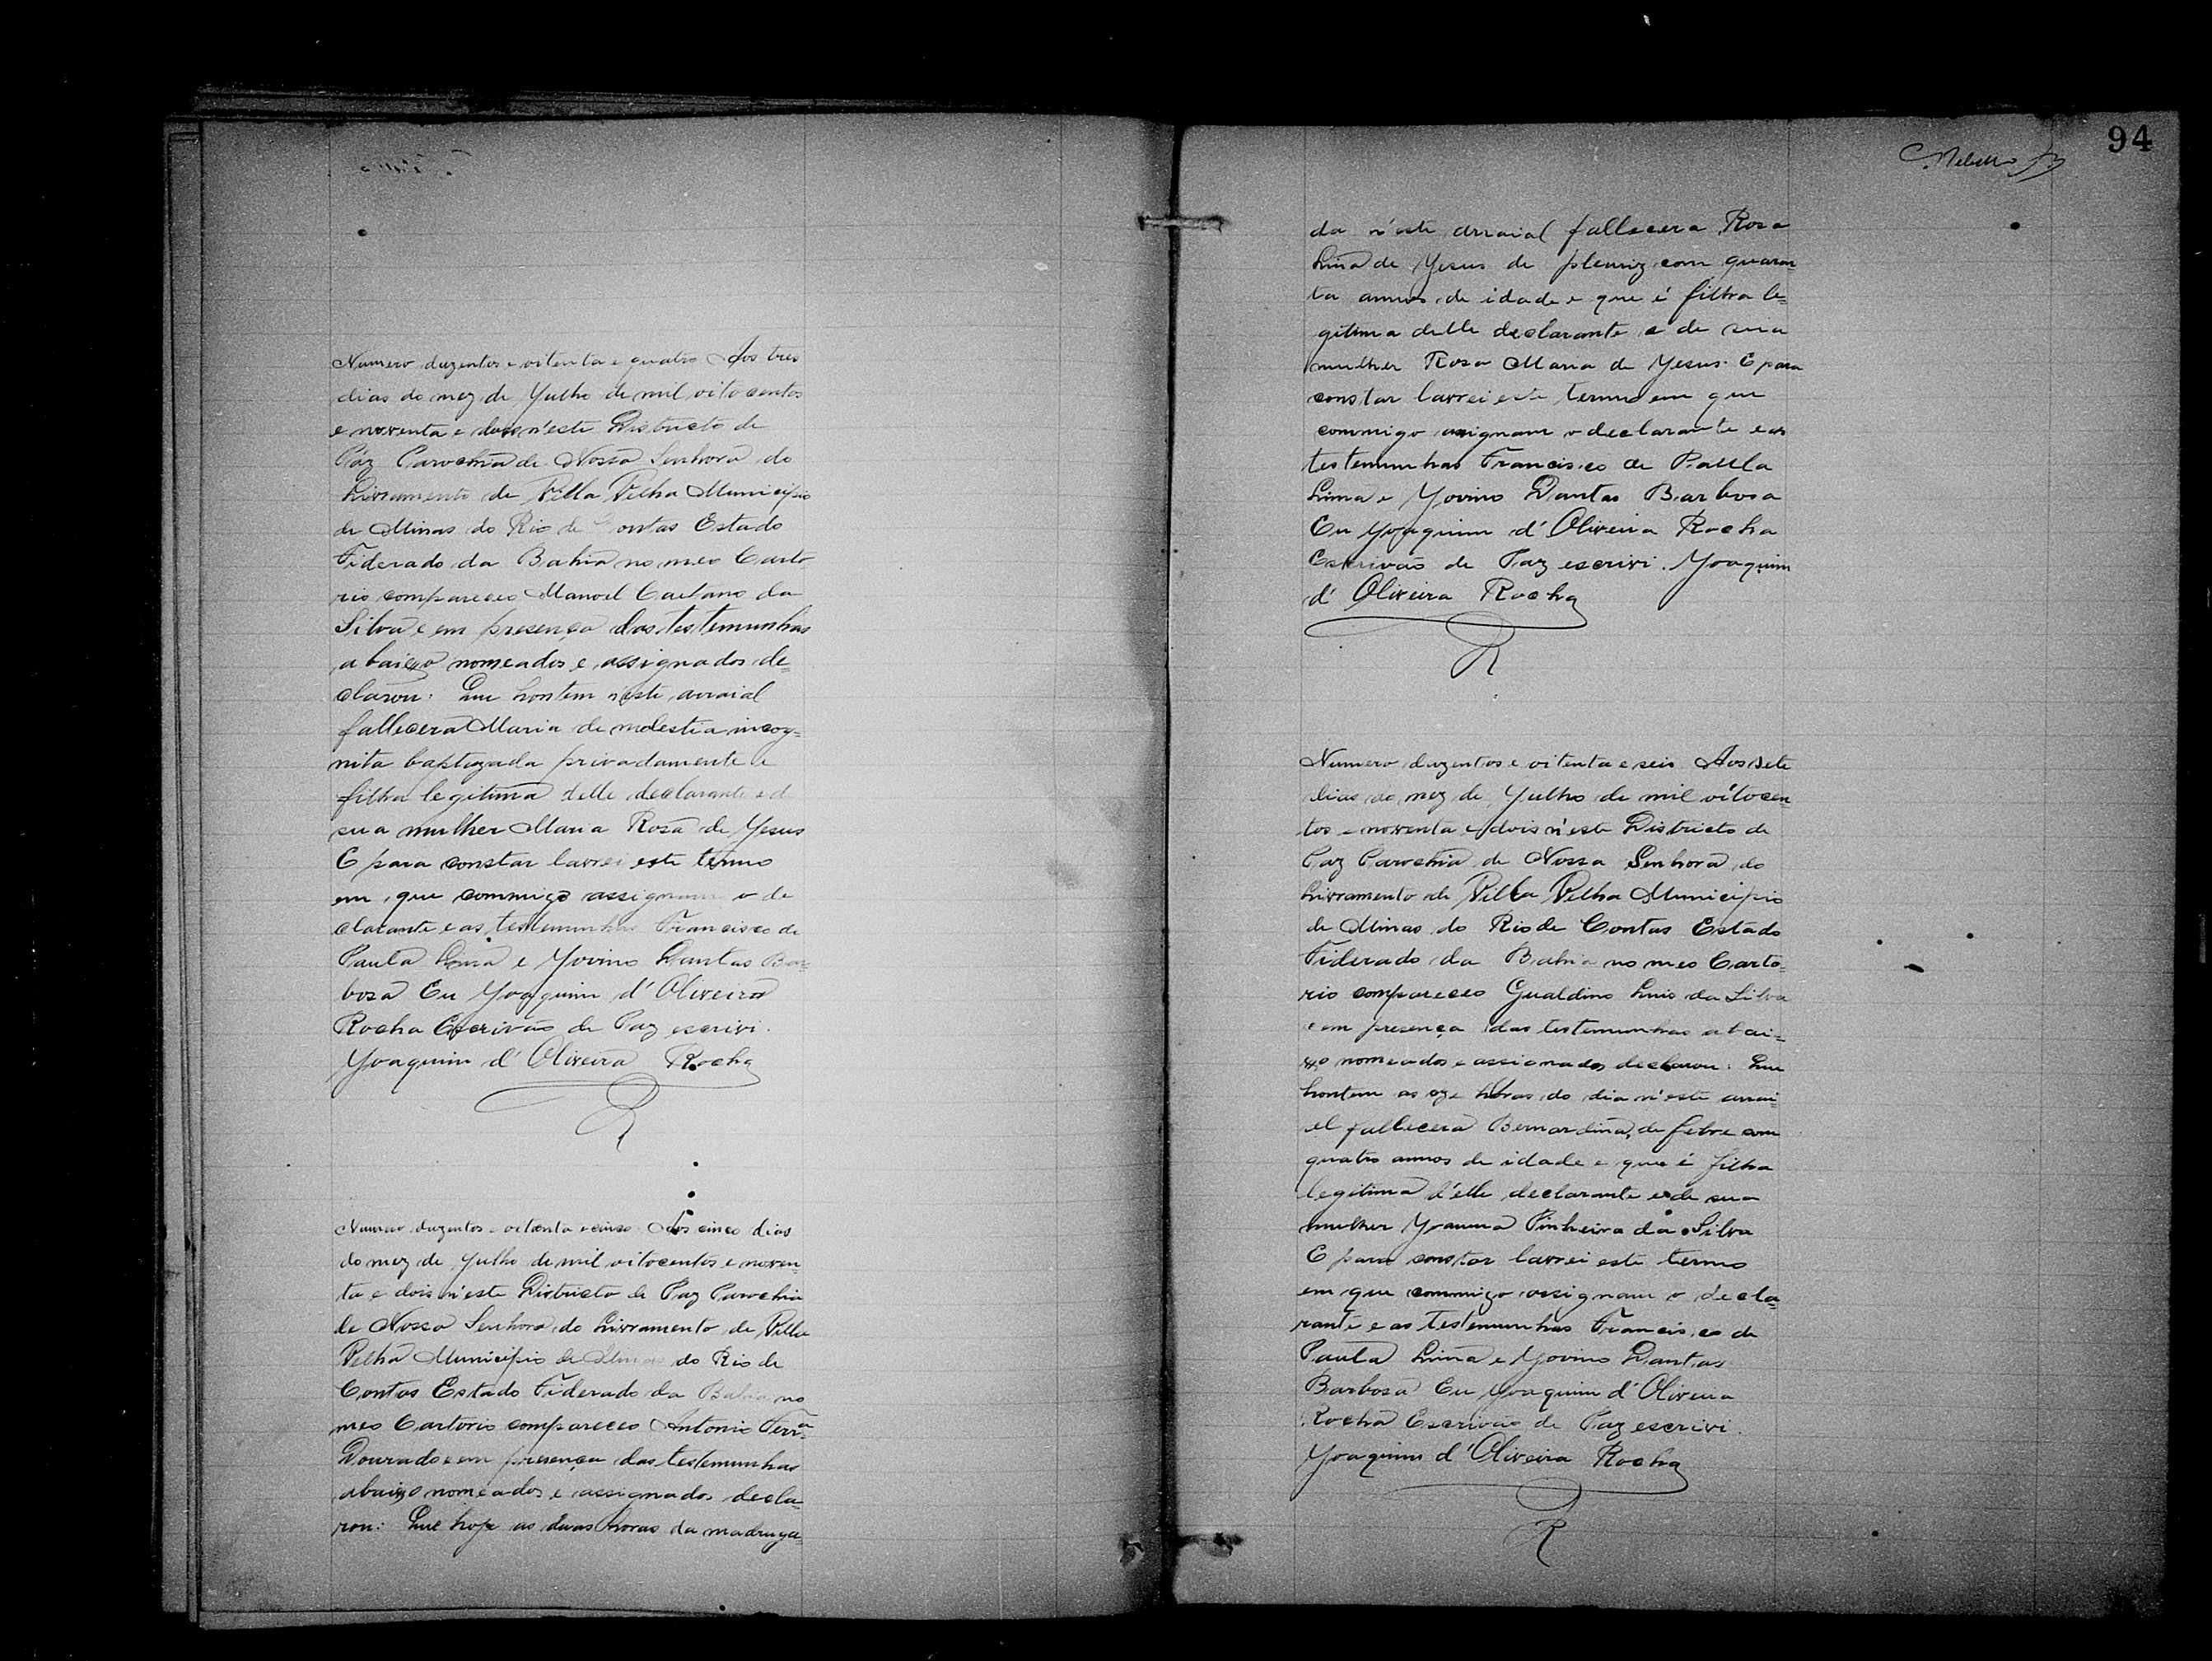 Numero duzentos e oitenta e quatro Aos tres
dias do mez de Julho de mil oito centos
e noventa e dois n'este Districto de
Paz Parochia de Nossa Senhora do
Livramento de Villa Velha Municipio
de Minas do Rio de Contas Estado
Federado da Bahia no meo Carto
rio compareceo Manoel Caetano da
Silva e em presença das testemunhas
abaixo nomeados e assignados de=
clarou: Que hontem n'este arraial
fallecera Maria de molestia incog=
nita baptizada privadamente e
filha legitima delle declarante e d
sua mulher Maria Rosa de Jesus
E para constar lavrei este termo
em que commigo assignam o de
clarante e as testemunhas Francisco de
Paula Lima e Jovino Dantas Bar=
bosa Eu Joaquim d'Oliveira
Rocha Escrivão de Paz escrivi.
Joaquim d'Oliveira Rocha
R
Numero duzentos e oitenta e cinco Aos cinco dias
do mez de Julho de mil oitocentos e noven=
ta e dois n'este Districto de Paz Parochia
de Nossa Senhora do Livramento de Villa
Velha Municipio de Minas do Rio de
Contas Estado Federado da Bahia no
meo Cartorio compareceo Antonio Ferrª
Dourado e em presença das testemunhas
abaixo nomeados e assignados decla=
rou: Que hoje as duas horas da madruga=
94
da n'este arraial fallecera Rosa
Lina de Jesus de pleuriz com quaren
ta annos de idade e que é filha le=
gitima delle declarante e de sua
mulher Rosa Maria de Jesus. E para
constar lavrei este termo em que
commigo assignam o declarante e as
testemunhas Francisco de Paula
Lima e Jovino Dantas Barbosa
Eu Joaquim d'Oliveira Rocha
Escrivão de Paz escrivi. Joaquim
d'Oliveira Rocha
R
Numero duzentos e oitenta e seis Aos sete
dias do mez de Julho de mil oitocen
tos e noventa e dois n'este Districto de
Paz Parochia de Nossa Senhora do
Livramento de Villa Velha Municipio
de Minas do Rio de Contas Estado
Federado da Bahia no meo Carto=
rio compareceo Gualdino Luis da Silva
e em presença das testemunhas abai=
xo nomeados e assignados declarou: Que
hontem as oze horas do dia n'este arrai=
el fallecera Bernardina, de febre com
quatro annos de idade e que é filha
legitima d'elle declarante e de sua
mulher Joanna Pinheira da Silva
E para constar lavrei este termo
em que commigo assignam o decla=
rante e as testemunhas Francisco de
Paula Lima e Jovino Dantas
Barbosa Eu Joaquim d'Oliveira
Rocha Escrivão de Paz escrivi.
Joaquim d'Oliveira Rocha
R